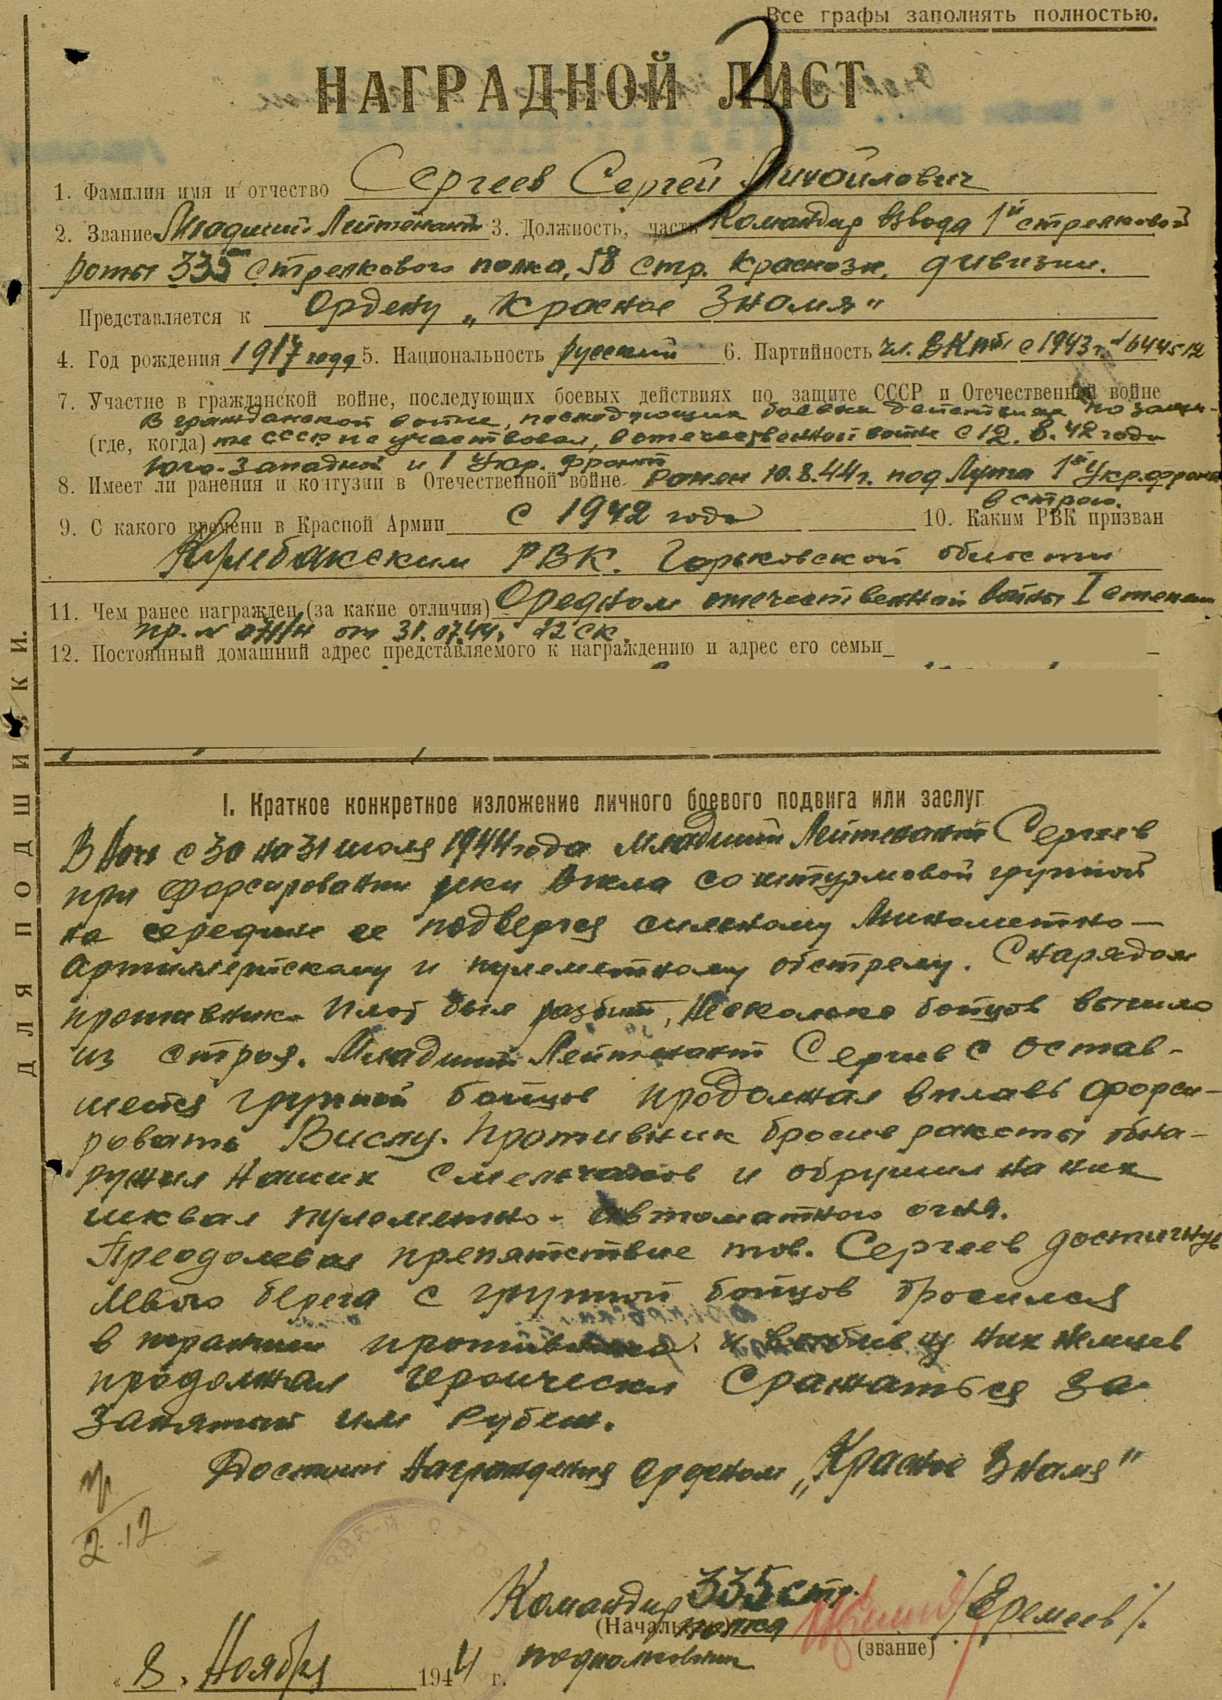 Все графы заполнять полностью.
3
НАГРАДНОЙ ЛИСТ
1. Фамилия имя и отчество Сергеев Сергей Михайлович
2. Звание Младший Лейтенант 3. Должность, часть Командир взвода 1й стрелковой
роты 335 стрелкового полка, 58 стр. Краснозн. дивизии.
Представляется к Ордену „Красное Знамя"
4. Год рождения 1917 года 5. Национальность русский 6. Партийность чл. ВКПб с 1943 г.
7. Участие в гражданской войне, последующих боевых действиях по защите СССР и Отечественной войне
В гражданской войне, последующих боевых действиях по защи-
(где, когда) те СССР не участвовал, в отечественной войне с 12.8.42 года
Юго-Западный и 1 Укр. фронт
8. Имеет ли ранения и контузии в Отечественной войне Ранен 10.8.44 г. под 1й Укр. фронт
в строю.
9. С какого времени в Красной Армии с 1942 года 10. Каким РВК призван
Кулебакским РВК. Горьковской области
11. Чем ранее награжден (за какие отличия) Орденом отечественной войны I степени
пр. № от 31.07.44. 52 СК.
12. Постоянный домашний адрес представляемого к награждению и адрес его семьи
ДЛЯ ПОДШИВКИ.
I. Краткое конкретное изложение личного боевого подвига или заслуг
В ночь с 30 на 31 июля 1944 года Младший Лейтенант Сергеев
при форсировании реки Висла со штурмовой группой
на середине ее подвергся сильному Минометно-
Артиллерийскому и пулеметному обстрелу. Снарядом
противника плот был разбит, Несколько бойцов вышло
из строя. Младший Лейтенант Сергеев с остав-
шейся группой бойцов продолжал вплавь форси-
ровать Вислу. Противник бросив ракеты обна-
ружил наших смельчаков и обрушил на них
шквал пулеметно-автоматного огня.
Преодолевая препятствие тов. Сергеев достигнув
левого берега с группой бойцов бросился
в траншеи противника и выбив из них немцев
продолжал героически сражаться за
занятый им рубеж.
Достоин Награждения орденом „Красное Знамя"
2.12
Командир 335 стр.
(Начальник) полка /Еремеев/.
подполковник (звание)
„8" Ноября 1944 г.